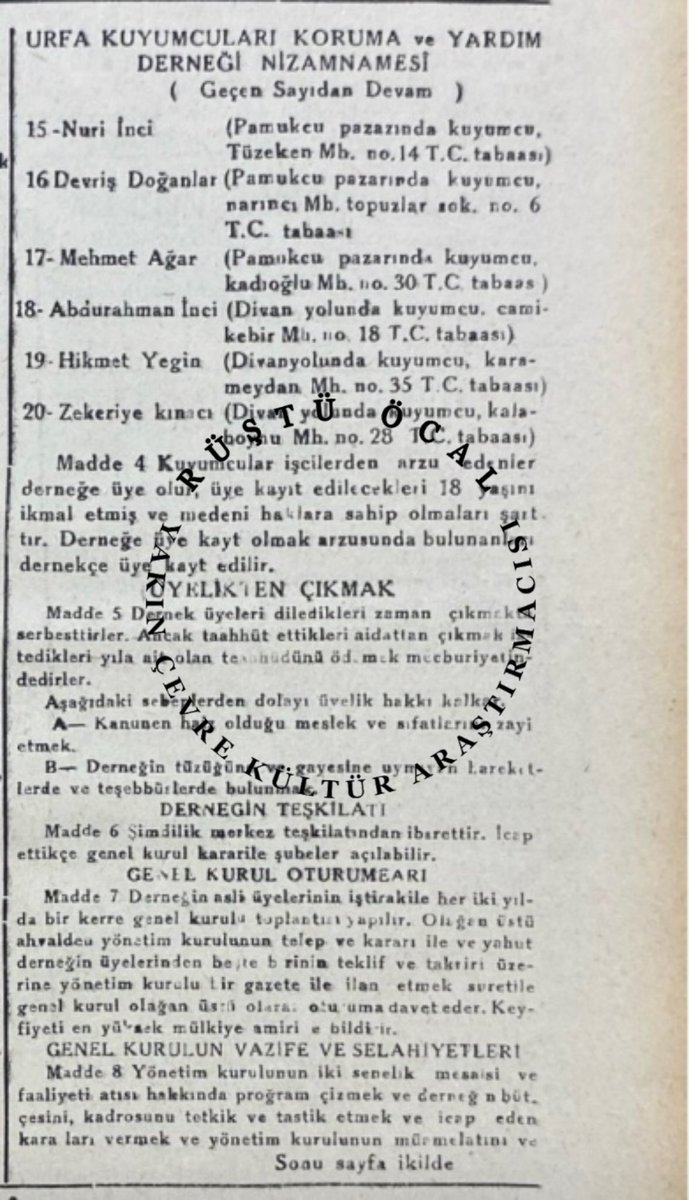 URFA KUYUMCULARI KORUMA ve YARDIM
DERNEĞİ NİZAMNAMESİ
( Geçen Sayıdan Devam )
15 -Nuri İnci (Pamukcu pazazında kuyumcu,
Tüzeken Mh. no.14 T.C. tabaası)
16 Devriş Doğanlar (Pamukcu pazarında kuyumcu,
narıncı Mb. topuzlar sok. no. 6
T.C. tabaası
17- Mehmet Ağar (Pamukcu pazarında kuyumcu,
kadıoğlu Mh. no. 30 T.C. tabaas )
18- Abdurahman İnci (Divan yolunda kuyumcu. cami-
kebir Mh. no. 18 T.C. tabaası)
19- Hikmet Yegin (Divanyolunda kuyumcu, kara-
meydan Mh. no. 35 T.C. tabaası)
20- Zekeriye kınacı (Divan yolunda kuyumcu, kala-
boynu Mh. no. 28 T.C. tabaası)
Madde 4 Kuyumcular işcilerden arzu edenler
derneğe üye olur, üye kayıt edilecekleri 18 yaşını
ikmal etmiş ve medeni haklara sahip olmaları şart
tır. Derneğe üye kayt olmak arzusunda bulunanlar
dernekçe üye kayt edilir.
ÜYELİKTEN ÇIKMAK
Madde 5 Dernek üyeleri diledikleri zaman çıkmakta
serbesttirler. Ancak taahhüt ettikleri aidattan çıkmak is
tedikleri yıla ait olan ödemek mecburiyetin-
dedirler.
Aşağıdaki sebeplerden dolayı üyelik hakkı kalkar
A— Kanunen haiz olduğu meslek ve sıfatlarını zayi
etmek.
B— Derneğin tüzüğüne ve gayesine uymayan hareket-
lerde ve teşebbüslerde bulunmak.
DERNEGİN TEŞKİLATI
Madde 6 Şimdilik merkez teşkilatından ibarettir. İcap
ettikçe genel kurul kararile şubeler açılabilir.
GENEL KURUL OTURUMEARI
Madde 7 Derneğin asli üyelerinin iştirakile her iki yıl-
da bir kerre genel kurulu toplantısı yapılır. Olağan üstü
ahvalden yönetim kurulunun talep ve kararı ile ve yahut
derneğin üyelerinden beşte birinin teklif ve takriri üze-
rine yönetim kurulu bir gazete ile ilan etmek suretile
genel kurul olağan üstü olarak oturuma davet eder. Key-
fiyeti en yüksek mülkiye amirine bildirir.
GENEL KURULUN VAZIFE VE SELAHİYETLERİ
Madde 8 Yönetim kurulunun iki senelik mesaisi ve
faaliyeti atısı hakkında proğram çizmek ve derneğin büt.
çesini, kadrosunu tetkik ve tastik etmek ve icap eden
kararları vermek ve yönetim kurulunun muamelatını ve
Sonu sayfa ikilde
RÜŞTÜ ÖCAL
YAKIN ÇEVRE KÜLTÜR ARAŞTIRMACISI